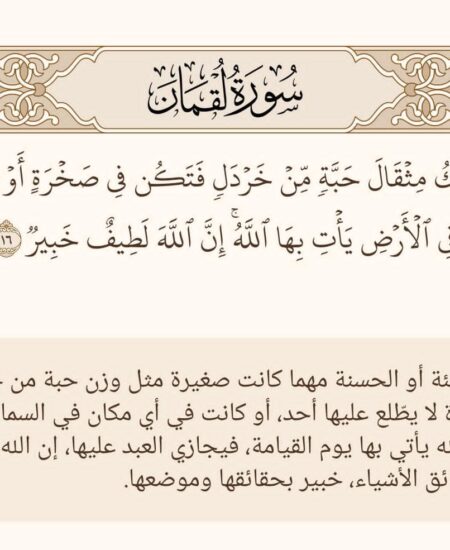 سُورَةُ لُقۡمَانَ
مِثۡقَالَ حَبَّةٖ مِّنۡ خَرۡدَلٖ فَتَكُن فِي صَخۡرَةٍ أَوۡ
ٱلۡأَرۡضِ يَأۡتِ بِهَا ٱللَّهُۚ إِنَّ ٱللَّهَ لَطِيفٌ خَبِيرٞ ١٦
أو الحسنة مهما كانت صغيرة مثل وزن حبة من
لا يطّلع عليها أحد، أو كانت في أي مكان في
يأتي بها يوم القيامة، فيجازي العبد عليها، إن الله
الأشياء، خبير بحقائقها وموضعها.